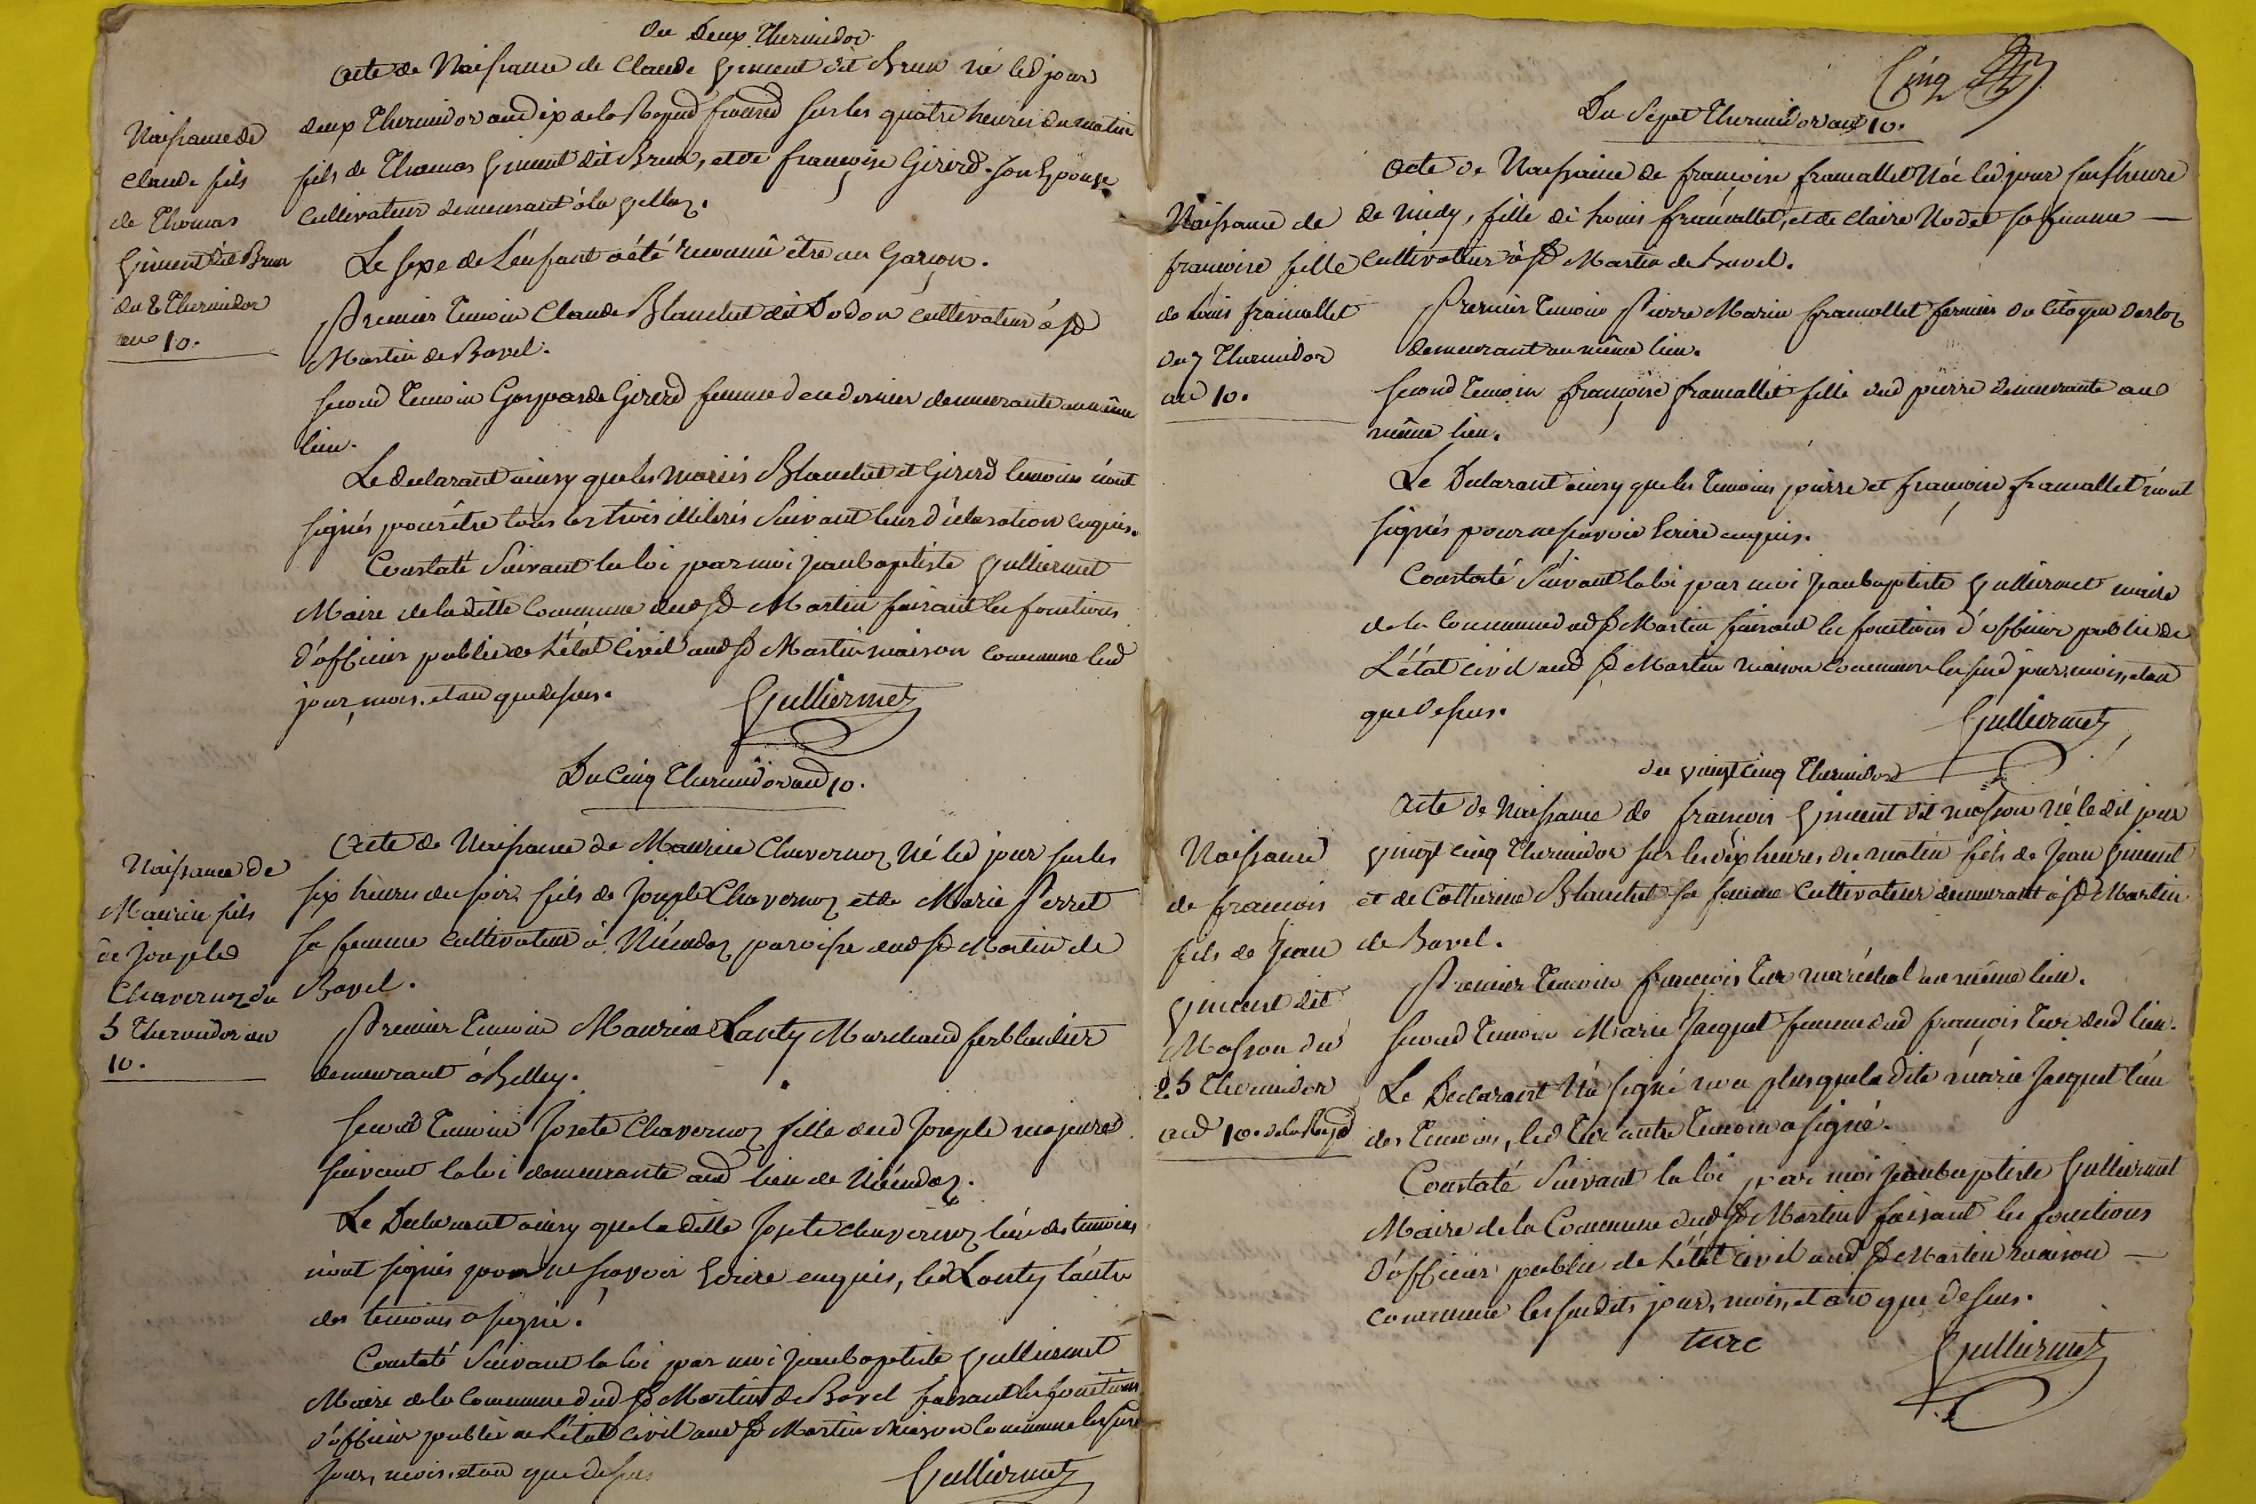 Du Deux Thermidor
Acte de Naissance de Claude Giment dit Brun né led jour
deux Thermidor an dix de la Repud francd sur les quatre heures du matin
fils de Thomas Giment dit Brun, et de françoise Girerd son Epouse
Cultivateur demeurant à la
Le sexe de L'enfant a été reconnû être un Garçon.
Premier Temoin Claude Blanchet dit Dodon cultivateur à St
Martin de Bavel.
second Temoin Gasparde Girerd femme de ce dernier demeurante au même
lieu.
Le declarant ainsy que les mariés Blanchet et Girerd temoins n'ont
signés pour être tous les trois illiterés suivant leur déclaration enquis.
Constaté Suivant la loi par moi jeanbaptiste Gulliermet
Maire de la ditte Commune dud St Martin faisant les fonctions
d'officier public de L'état Civil aud St Martin maison commune led
jour, mois, et an que dessus.
Gulliermet
Naissance de
Claude fils
de Thomas
Giment dit Brun
du 2 Thermidor
an 10.
Du Cinq Thermidor an 10.
Acte de Naissance de Maurice Chavernoz Né led jour sur les
six heures du soir fils de Joseph Chavernoz et de Marie Perret
sa femme cultivateur à paroisse dud St Martin de
Bavel.
Premier Temoin Maurice Lanty Marchand ferblantier
demeurant à Belley.
second Temoin Josete Chavernoz fille dud Joseph majeure
suivant la loi demeurante aud lieu de
Le Declarant ainsy que la ditte Josete chavernoz l'un des temoins
n'ont signés pour ne sçavoir Ecrire enquis, led Lanty l'autre
des temoins a signé.
Constaté Suivant la loi par moi jeanbaptiste Gulliermet
Maire de la Commune dud St Martin de Bavel faisant les fonctions
d'officier public de L'état Civil aud St Martin Maison Commune les susd
jour, mois, et an que dessus
Gulliermet
Naissance de
Maurice fils
de Joseph
Chavernoz du
5 Thermidor an
10.
Cinq
Du Sept Thermidor an 10.
Acte de Naissance de françoise framallet Née led jour sur l'heure
de midy, fille de Louis framallet, et de Claire Nodet sa femme
Cultivateur à St Martin de Bavel.
Premier Temoin Pierre Marin framallet fermier du Citoyen
demeurant au même lieu.
second Temoin françoise framallet fille dud pierre demeurante au
même lieu.
Le Declarant ainsy que les Temoins pierre et françoise framallet n'ont
signés pour ne sçavoir Ecrire enquis.
Constaté Suivant la loi par moi jeanbaptiste Gulliermet maire
de la Commune dud St Martin faisant les fonctions d'officier public de
L'état civil aud St Martin maison commune les susd jour, mois, et an
que dessus.
Gulliermet
Naissance de
françoise fille
de Louis framallet
du 7 Thermidor
an 10.
du vingt cinq Thermidor
Acte de Naissance de françois Giment dit masson Né le dit jour
vingt cinq Thermidor sur les dix heures du matin fils de Jean Giment
et de Catherine Blanchet sa femme Cultivateur demeurant à St Martin
de Bavel.
Premier Temoin françois Turc maréchal au même lieu.
second Temoin Marie Jacquet femme dud françois Turc dud lieu.
Le Declarant N'a signé non plus que la dite marie Jacquet l'un
des Temoins, led Turc autre Temoin a signé.
Constaté Suivant la loi par moi jeanbaptiste Gulliermet
Maire de la Commune dud St Martin faisant les fonctions
d'officier public de L'état Civil aud St Martin maison
commune les susdits jour, mois, et an que dessus.
turc
Gulliermet
Naissance
de françois
fils de Jean
Giment dit
Masson du
25 Thermidor
an 10. de la Repd